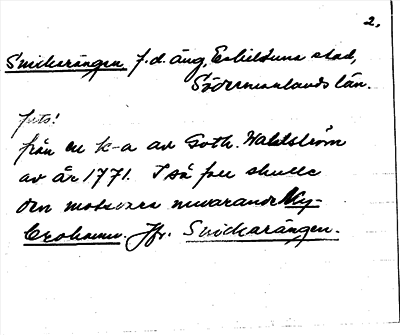 2.
Snickarängen f.d. äng, Eskilstuna stad,
Södermanlands län.
från en k-a av Goth. Wahlström
av år 1771. I så fall skulle
den motsvara nuvarande Ny-
Jfr. Snickarängen.